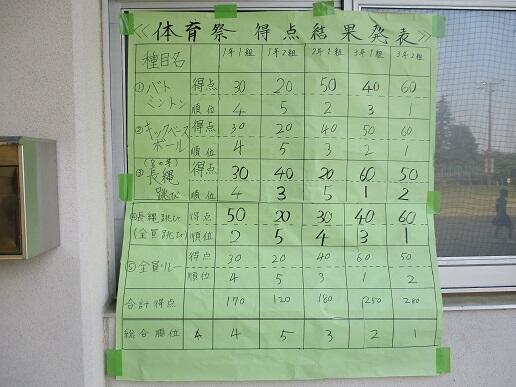 ≪体育祭 得点結果発表≫
種目名 1年1組 1年2組 2年1組 3年1組 3年2組
①バトミントン 得点 30 20 50 40 60
順位 4 5 2 3 1
②キックベースボール 得点 30 20 40 50 60
順位 4 5 3 2 1
③長縄跳び 得点 30 40 20 60 50
順位 4 3 5 1 2
④長縄跳び 得点 50 20 30 40 60
(全員跳び) 順位 2 5 4 3 1
⑤全員リレー 得点 30 20 40 60 50
順位 4 5 3 1 2
合計得点 170 120 180 250 280
総合順位 4 4 5 3 2 1